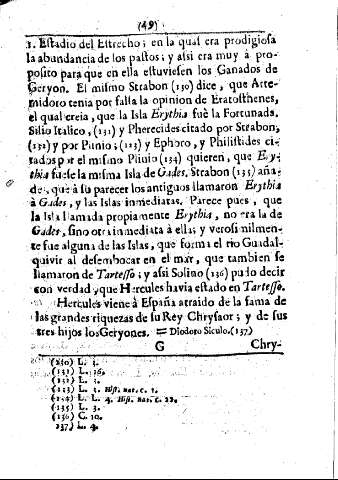 (49)
1. Estadio del Estrecho; en la qual era prodigiosa
la abundancia de los pastos; y assi era muy à pro-
posito para que en ella estuviesen los Ganados de
Geryon. El mismo Strabon (130) dice, que Arte-
midoro tenia por falsa la opinion de Eratosthenes,
el qual creia, que la Isla Erythia fuè la Fortunada.
Silio Italico, (131) y Pherecides citado por Strabon,
(132) y por Plinio; (133) y Ephoro, y Philistides ci-
tados por el mismo Plinio (134) quieren, que Ery-
thia fuese la misma Isla de Gades. Strabon (135) aña-
de, que à su parecer los antiguos llamaron Erythia
à Gades, y las Islas inmediatas. Parece pues, que
la Isla llamada propiamente Erythia, no era la de
Gades, sino otra inmediata à ella; y verosimilmen-
te fue alguna de las Islas, que forma el rio Guadal-
quivir al desembocar en el mar, que tambien se
llamaron de Tartesso; y asi Solino (136) pudo decir
con verdad, que Hercules havia estado en Tartesso.
Hercules viene à España atraido de la fama de
las grandes riquezas de su Rey Chrysaor; y de sus
tres hijos los Geryones. = Diodoro Siculo. (137)
G Chry-
(130) L. 3.
(131) L. 16.
(132) L. 3.
(133) L. 3. Hist. nat. c. 1.
(134) L. L. 4. Hist. nat. c. 22.
(135) L. 3.
(136) C. 10.
137) L. 4.